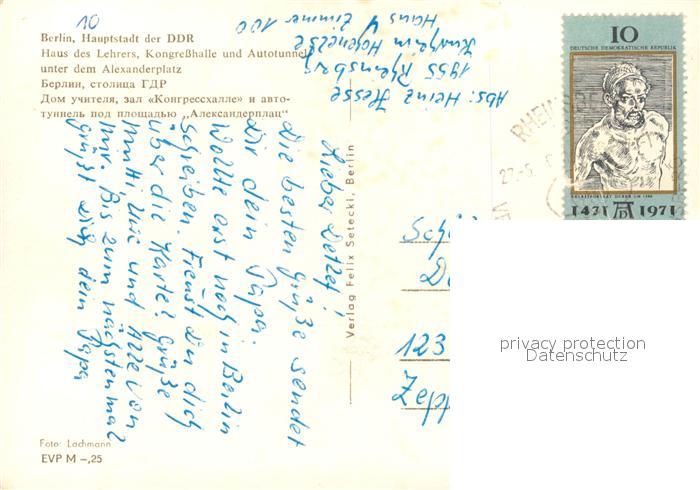 10
Berlin, Hauptstadt der DDR
Haus des Lehrers, Kongreßhalle und Autotunnel
unter dem Alexanderplatz
Берлин, столица ГДР
Дом учителя, зал «Конгрессхалле» и авто-
туннель под площадью „Александерплац"
Abs: Heinz Hesse
1955 Rheinsberg
Haus 4 Zimmer 100
Lieber Detlef!
Die besten Grüße sendet
Dir dein Papa.
Wollte erst noch in Berlin
schreiben. Freust du dich
über die Karte? Grüße
Mutti, und Alle von
mir. Bis zum nächstenmal
grüßt Dich dein Papa
Verlag Felix Setecki, Berlin
10
DEUTSCHE DEMOKRATISCHE REPUBLIK
1471 AD 1971
RHEINSBE
Sch
D
123
Zepp
privacy protection
Datenschutz
Foto: Lachmann
EVP M –,25